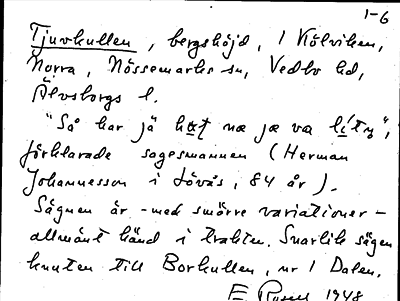 1-6
Tjuvkullen, bergshöjd, 1 Kölviken,
Norra, Nössemarks sn, Vedbo hd,
Älvsborgs l.
"Så har jä næ jæ va
förklarade sagesmannen (Herman
Johannesson i Lövås, 84 år).
Sägnen är -med smärre variationer-
allmänt känd i trakten. Snarlik sägen
knuten till Borkullen, nr 1 Dalen.
E 1948